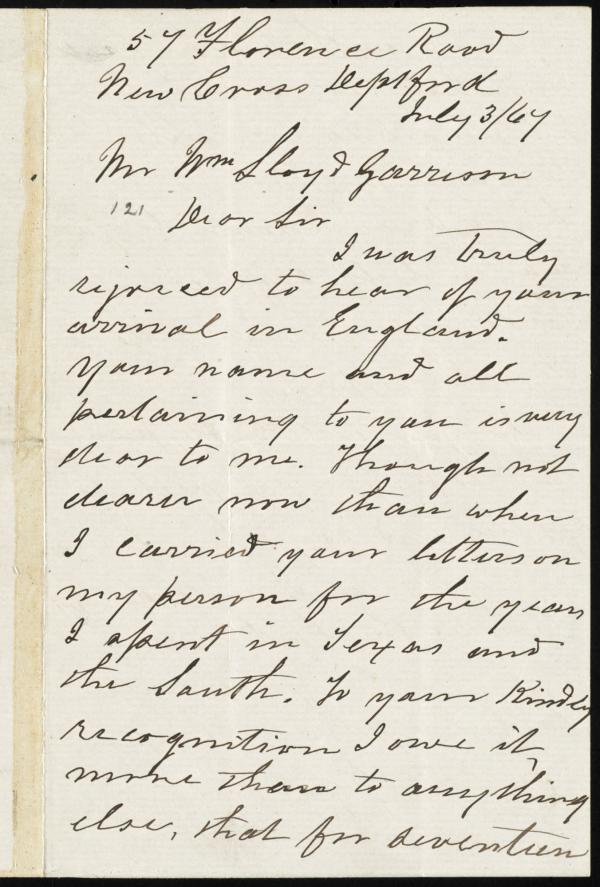 57 Florence Road
New Cross Deptford
July 3/67
Mr Wm Lloyd Garrison
121 Dear Sir
I was truly
rejoiced to hear of your
arrival in England.
Your name and all
pertaining to you is very
dear to me. Though not
dearer now than when
I carried your letters on
my person for the years
I spent in Texas and
the South. To your Kindly
recognition I owe it,
more than to anything
else, that for seventeen